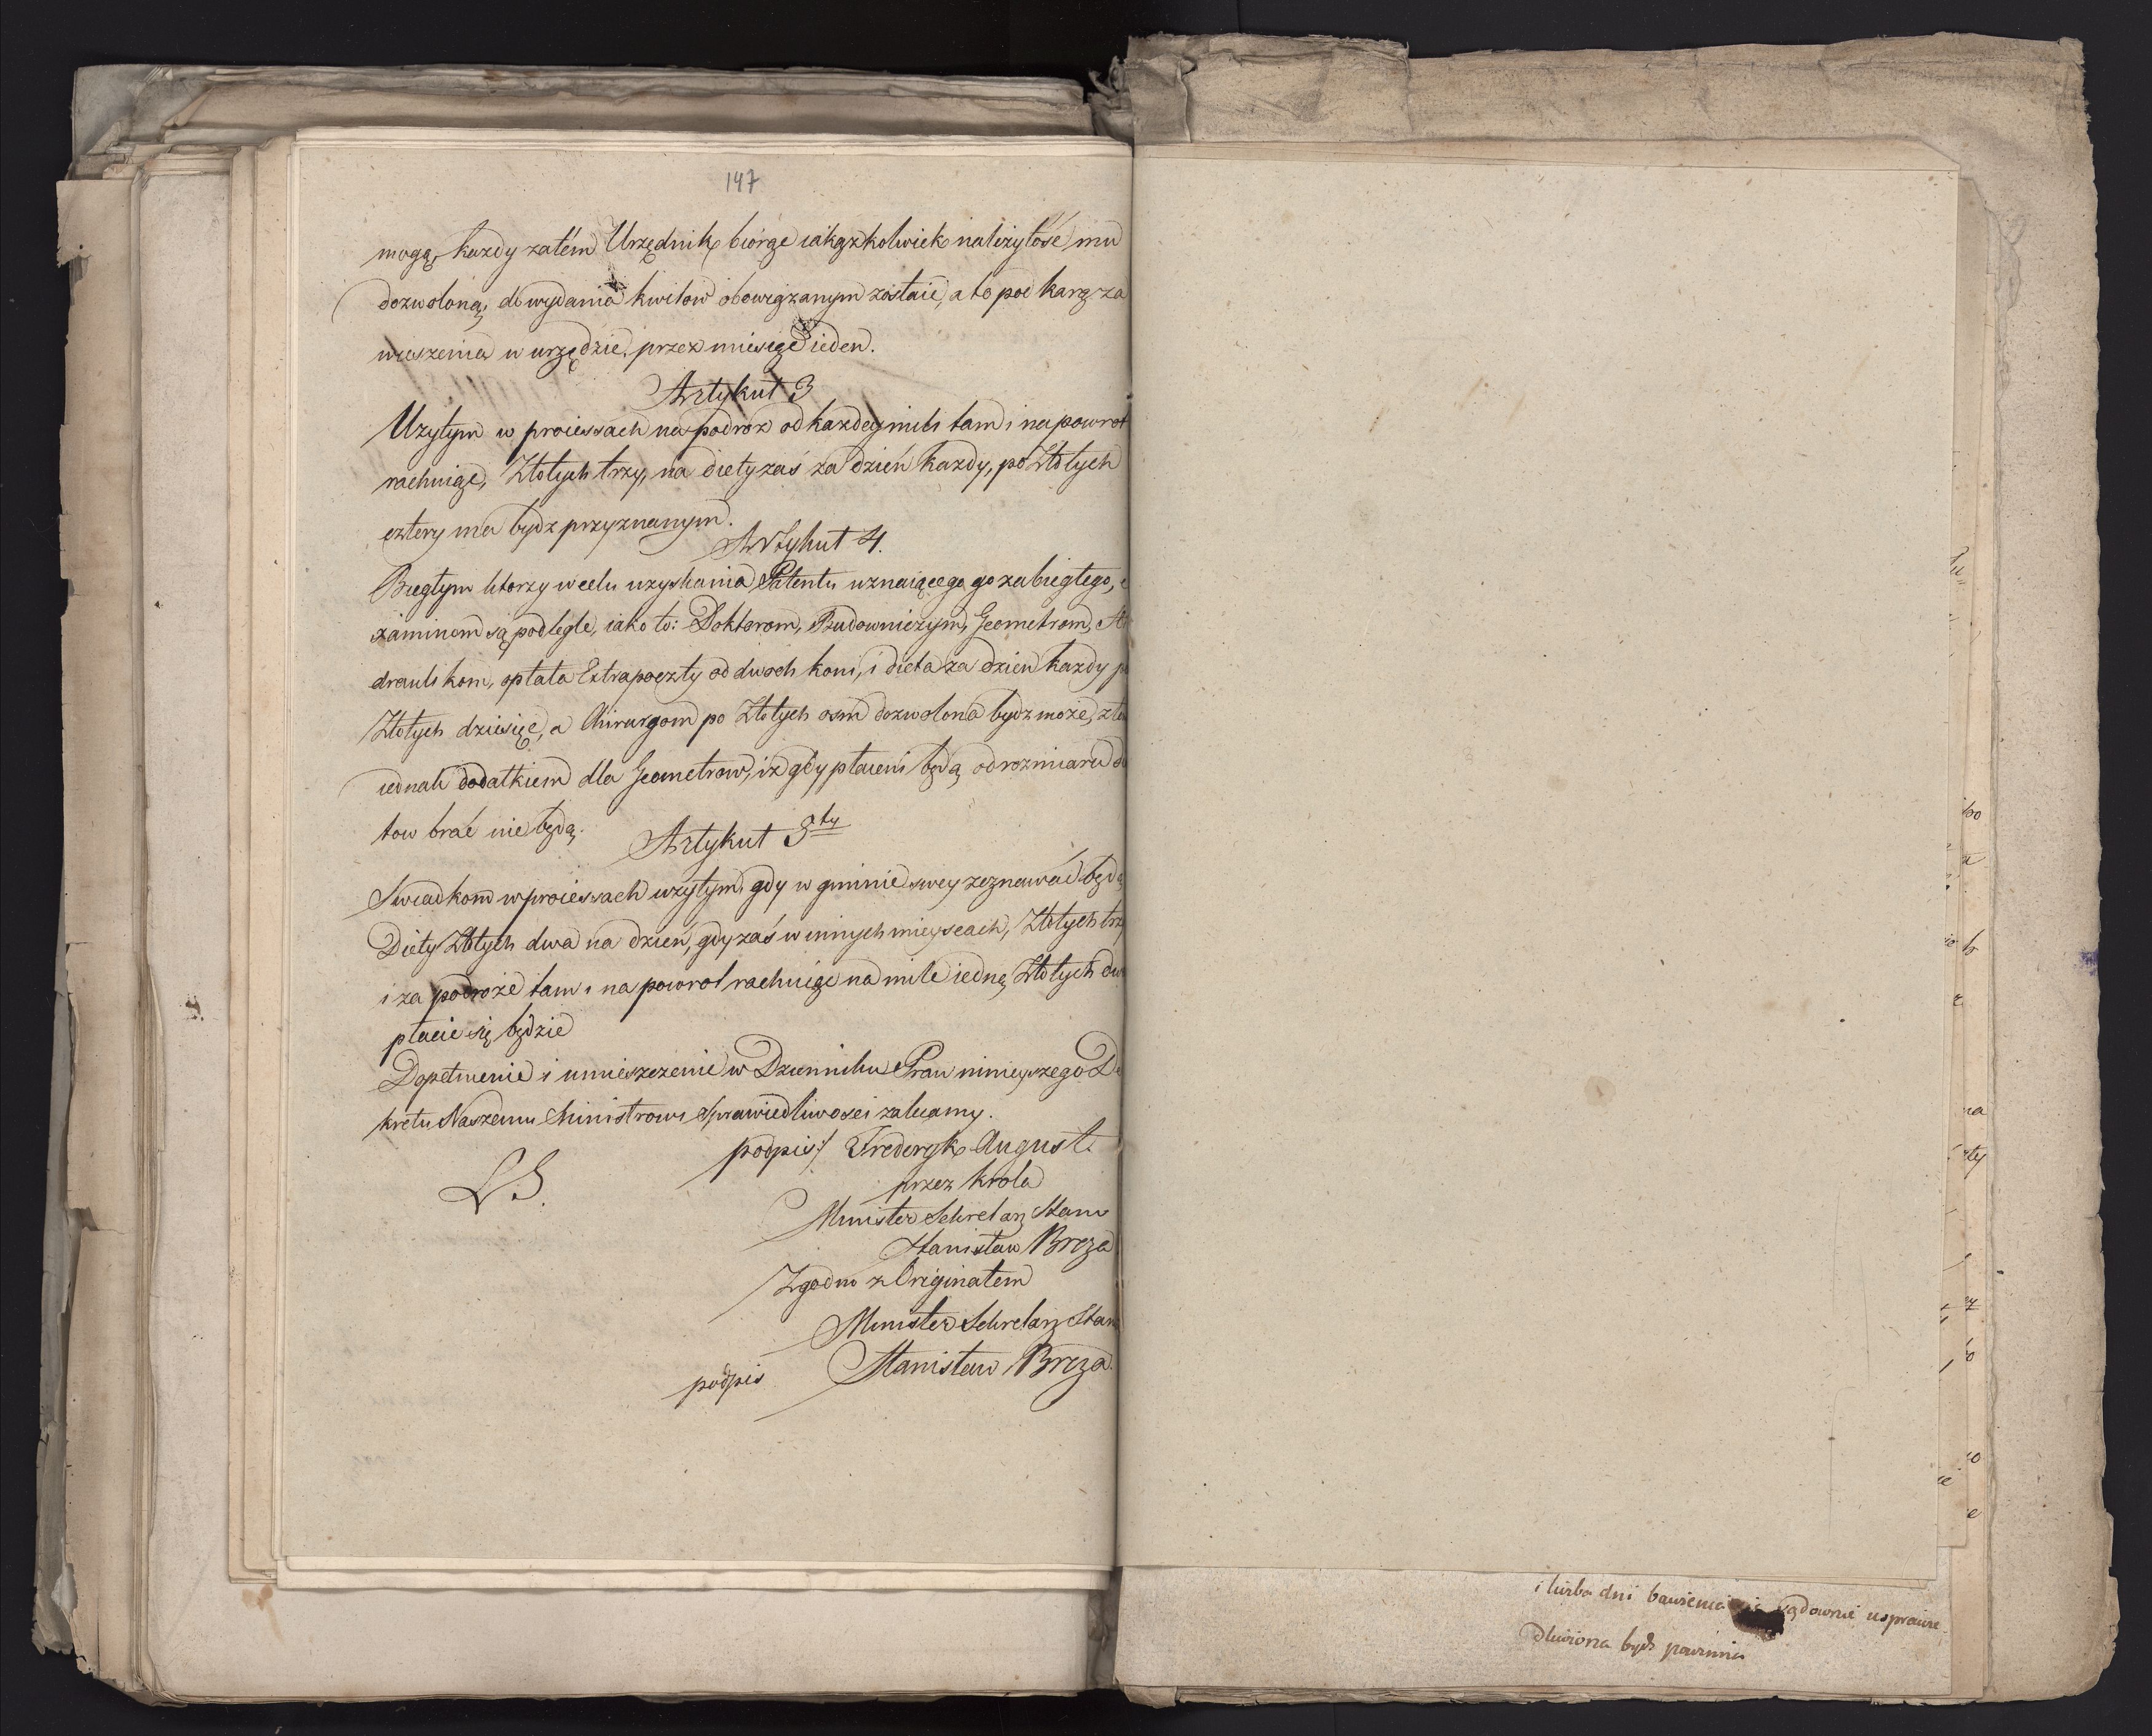 147
mogą, każdy zatém Urzędnik biorąc iakążkolwiek należytość mu
dozwoloną, do wydania kwitow obowiązanym zostaie, a to pod karą za
wieszenia w urzędzie, przez miesiąc ieden.
Artykuł 3
Uzytym w processach na podroż od każdey mili tam i na powrot
rachuiąc, Złotych trzy, na diety zaś za dzień każdy, po Złotych
cztery ma bydz przyznanym.
Artykuł 4.
Biegłym ktorzy w celu uzyskania Patentu uznaiącego go za biegłego, e
xaminom są podlegle, iako to: Doktorom, Budowniczym, Geometrom,
draulikom, opłata Extrapoczty od dwoch koni, i dieta za dzien każdy
Złotych dziesięć, a Chirurgom po Złotych osm dozwolona bydz może, z
iednak dodatkiem dla Geometrow, iż gdy płaceni będą od rozmiaru
tow brać nie będą.
Artykuł 5ty
Swiadkom w processach uzytym, gdy w gminie swey zeznawać będą
Diety Złotych dwa na dzień, gdy zaś w innych mieyscach, Złotych trzy
i za podroże tam i na powrot rachuiąc na mile iedną Złotych dwa
płacić się będzie
Dopełnienie i umieszczenie w Dzienniku Praw ninieyszego De
kretu Naszemu Ministrowi Sprawiedliwosci zalecamy.
podpis/ Frederyk August.
L.S.
przez krola
Minister Sekretarz Stanu
Stanisław Breza
Zgodno z Originałem
Minister Sekretarz Stanu
podpis Stanisław Breza
i liczba dni bawienia się sądownie usprawie
dliwiona bydź powinna